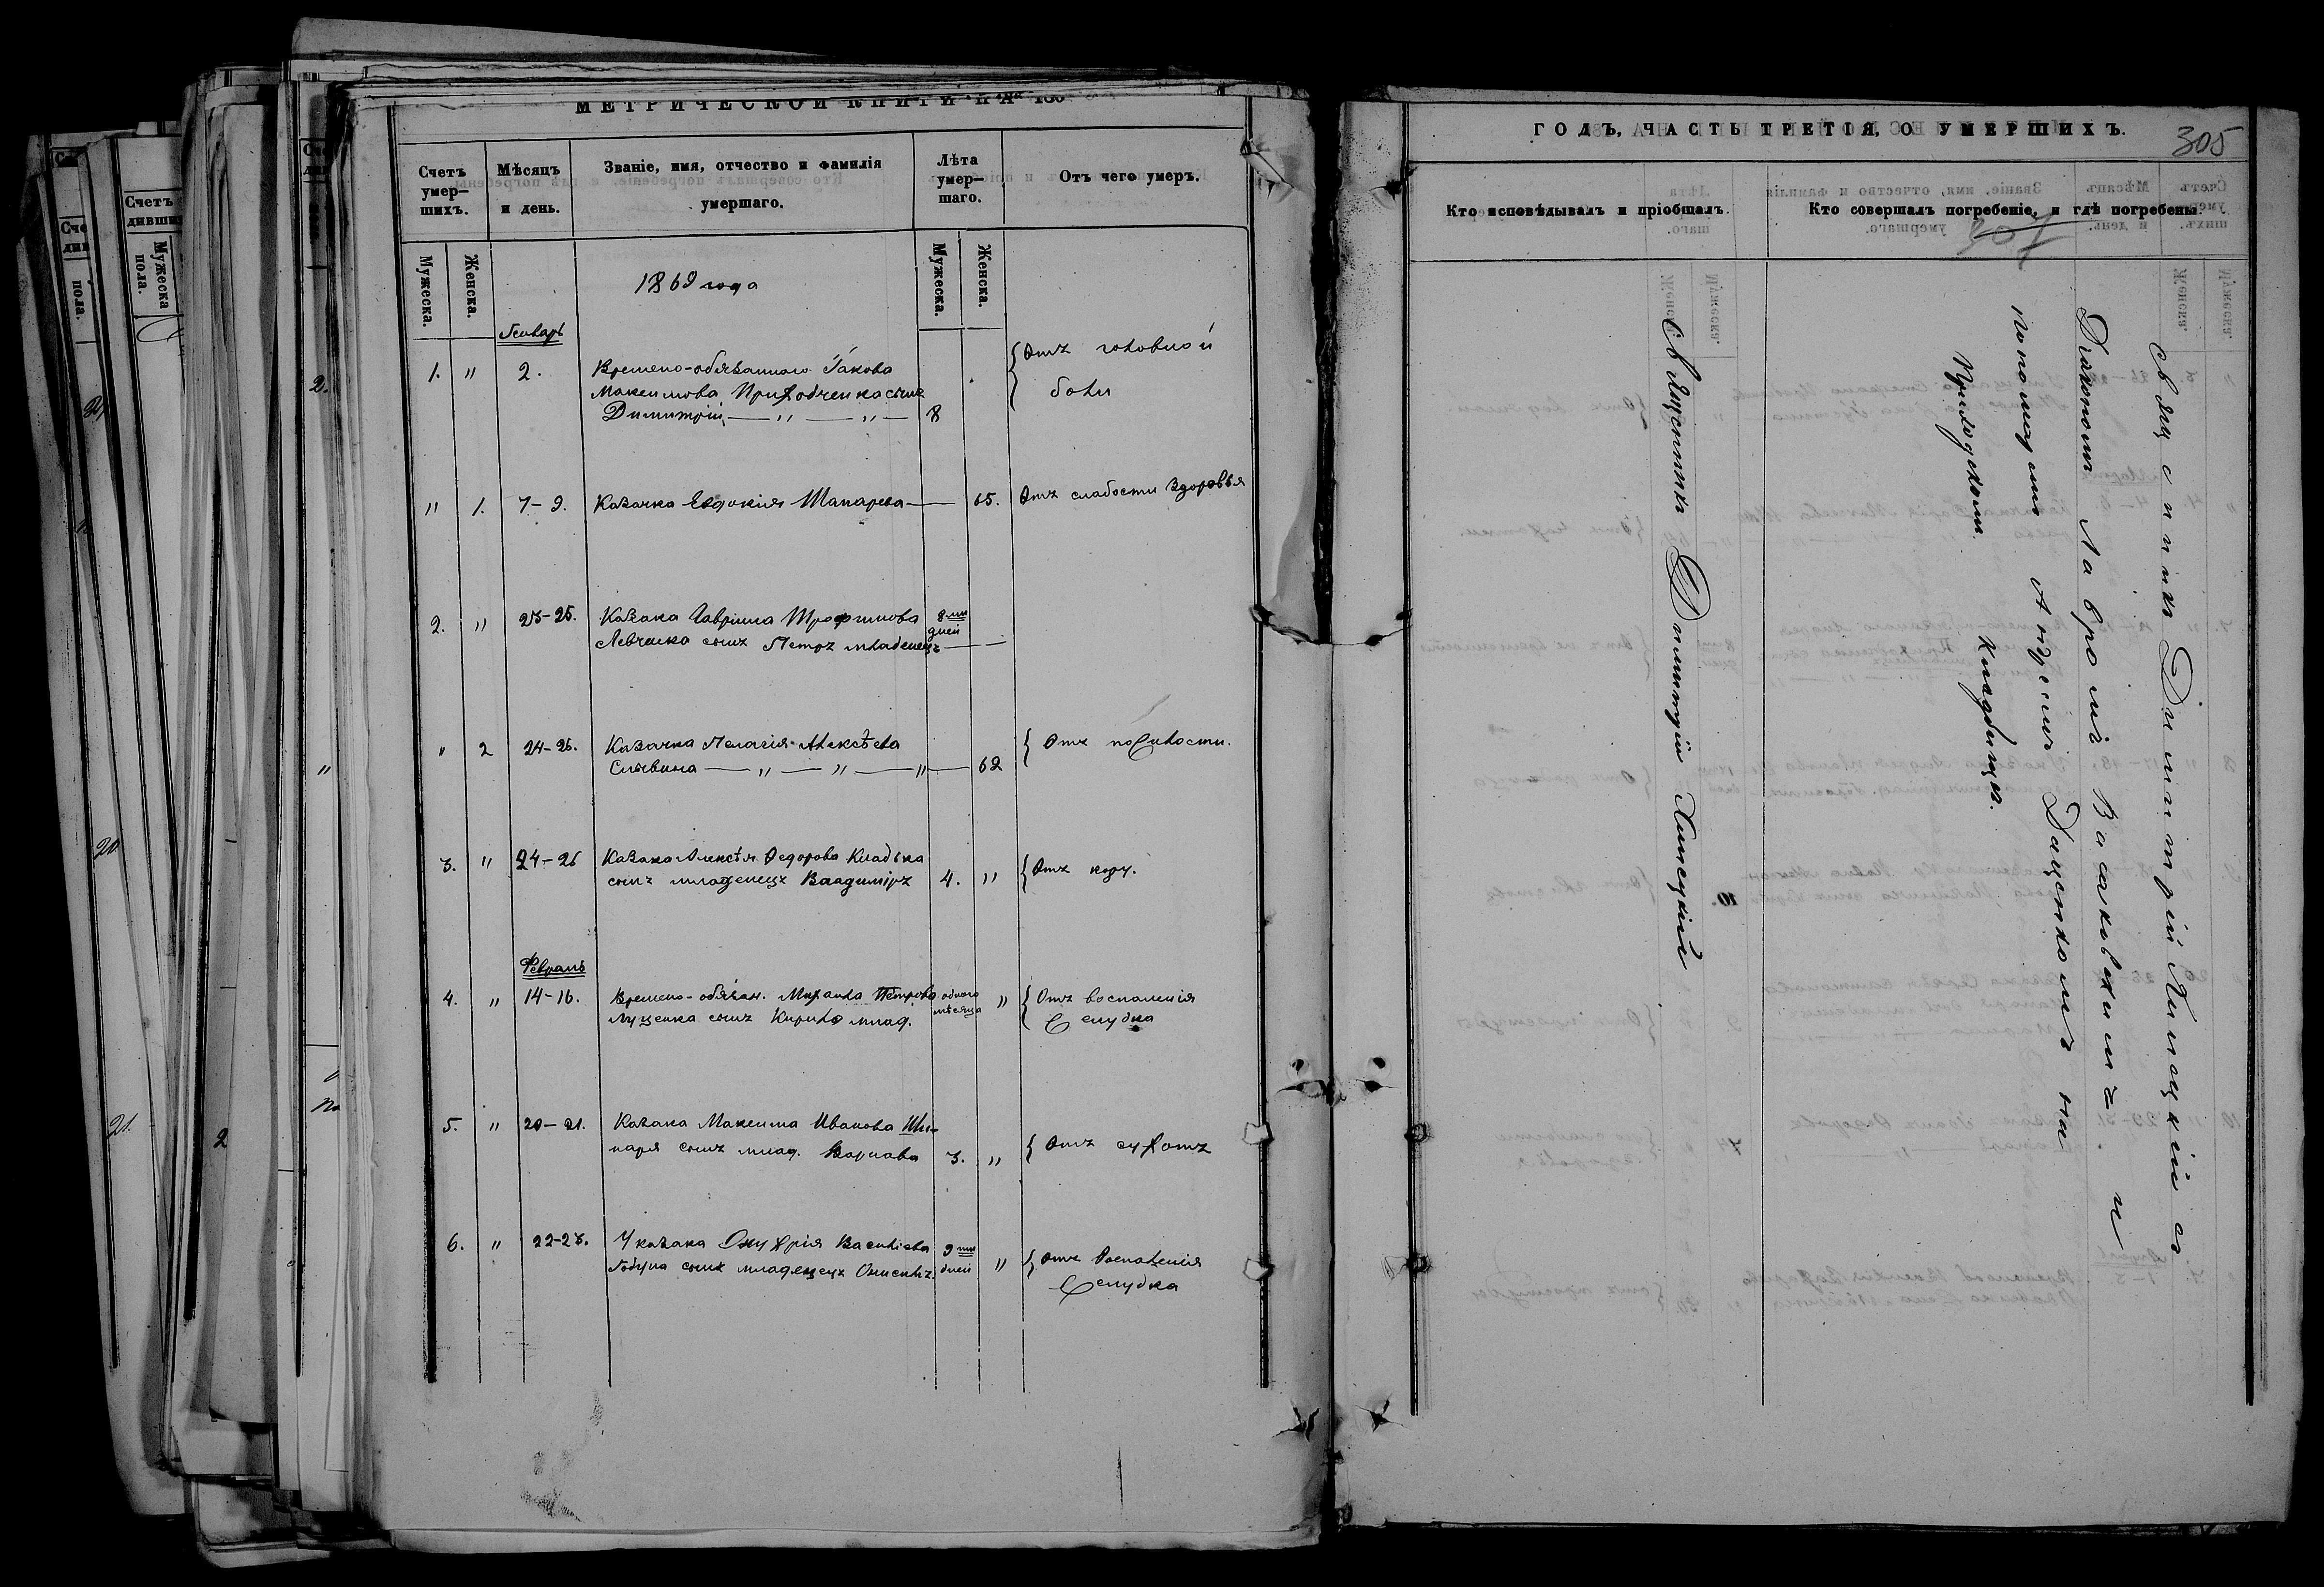 МЕТРИЧЕСКОЙ КНИГИ НА 186
Счетъ умер-
шихъ.
Мѣсяцъ
и день.
Званіе, имя, отчество и фамилія
умершаго.
Лѣта
умер-
шаго.
Отъ чего умеръ.
Мужеска.
Женска.
Мужеска.
Женска.
1869 года
Генварь
1. " 2. Времено-обязаннаго Іакова
Максимова Приходченка сынъ
Димитрій — " — " — 8
Отъ головной
боли
" 1. 7-9. Казачка Евдокія Шапарева — 65. Отъ слабости здоровья
2. " 23-25. Казака Гавріила Трофимова 8-ми
Левченка сынъ Петръ младенецъ дней
" 2 24-26. Казачка Пелагія Алексѣева
— " — " — " — 62
Отъ
3. " 24-26 Казака Алексѣя Федорова
сынъ младенецъ Владиміръ 4. "
Отъ кору.
Февраль
4. " 14-16. Времено-обязан. Михаила Петрова одного
Луценка сынъ Кирило млад. мѣсяца "
Отъ воспаленія
желудка
5. " 20-21. Казака Максима Иванова Ша-
паря сынъ млад. Варнава 3. "
Отъ сухотъ
6. " 22-23. У казака Онуфрія Василіева 9-ти
сынъ младенецъ Онисимъ. дней "
Отъ воспаленія
желудка
ГОДЪ, ЧАСТЬ ТРЕТІЯ, О УМЕРШИХЪ.
305
Кто исповѣдывалъ и пріобщалъ.
Кто совершалъ погребеніе, и гдѣ погребены.
Священникъ Димитрій Липецкій
Священникъ Димитрій Липецкій съ
Діакономъ и
пономаремъ Андреемъ Даценкомъ на
Приходскомъ кладбищѣ.